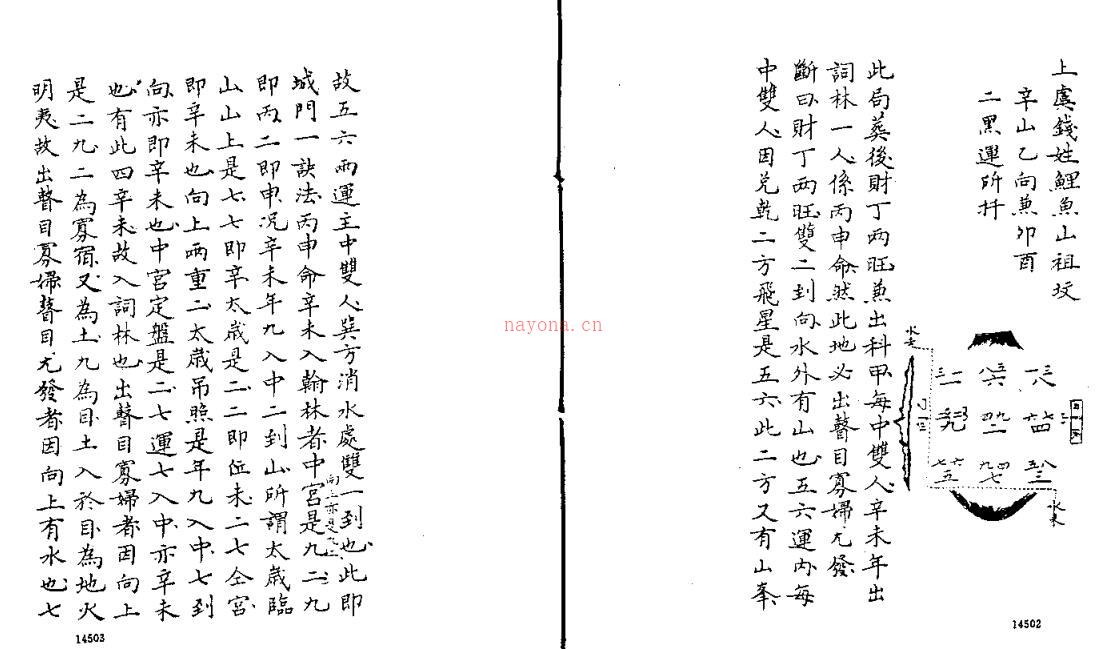 上虞錢姓鯉魚山祖坟
辛山乙向兼卯酉
二黑運所扦
水去
水来
此局葬後財丁兩旺兼出科甲每中雙人辛未年出
詞林一人係丙申命然此地必出瞽目寡婦尤發
斷曰財丁兩旺雙二到向水外有山也五六運內每
中雙人因兑乾二方飛星是五六此二方又有山峯
14502
故五六兩運主中雙人巽方消水處雙一到也此即
城門一訣法丙申命辛未入翰林者中宮是九二九
即丙二即申况辛未年九入中二到山所謂太歲臨
山山上是七七即辛太歲是二二即位未二七仝宮
即辛未也向上兩重二太歲吊照是年九入中七到
向亦即辛未也中宮定盤是二七運七入中亦辛未
也有此四辛未故入詞林也出瞽目寡婦者因向上
是二九二為寡宿又為土九為目土入於目為地火
明夷故出瞽目寡婦瞽目尤發者因向上有水也七
14503
nayona.cn